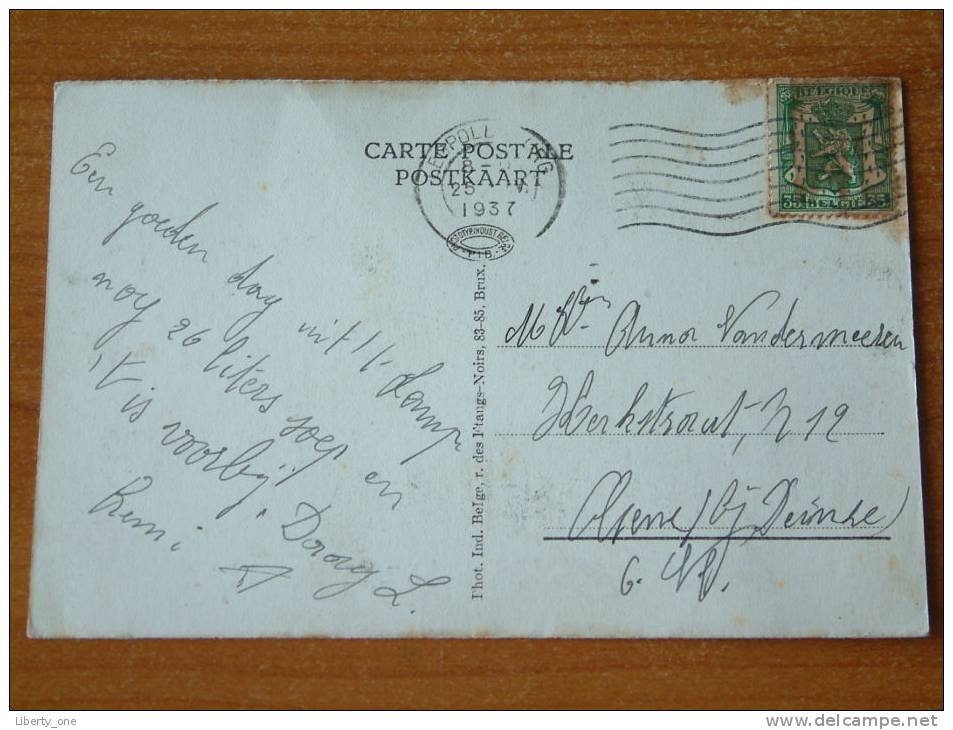 CARTE POSTALE
POSTKAART
1937
BELGIQUE
35 BELGIE 35
Een
goeden dag uit 't Kamp
nog 26 liters soep en
't is voorbij.
Remi
L.
Phot. Ind. Belge, r. des Etangs-Noirs, 83-85, Brux.
Anna Vandermeeren
Kerkstraat, N 12
(bij Deinze)
Liberty_one
www.delcampe.net